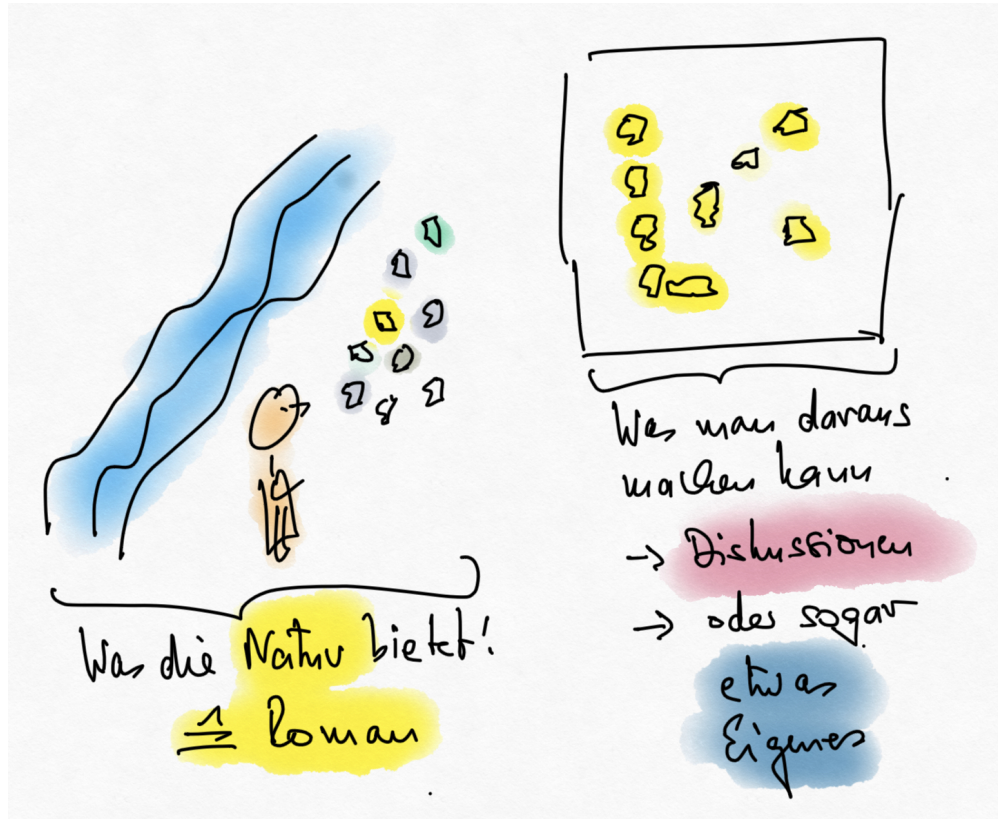 Was die Natur bietet!
≙ Roman
Was man daraus
machen kann
→ Diskussionen
→ oder sogar
etwas
Eigenes